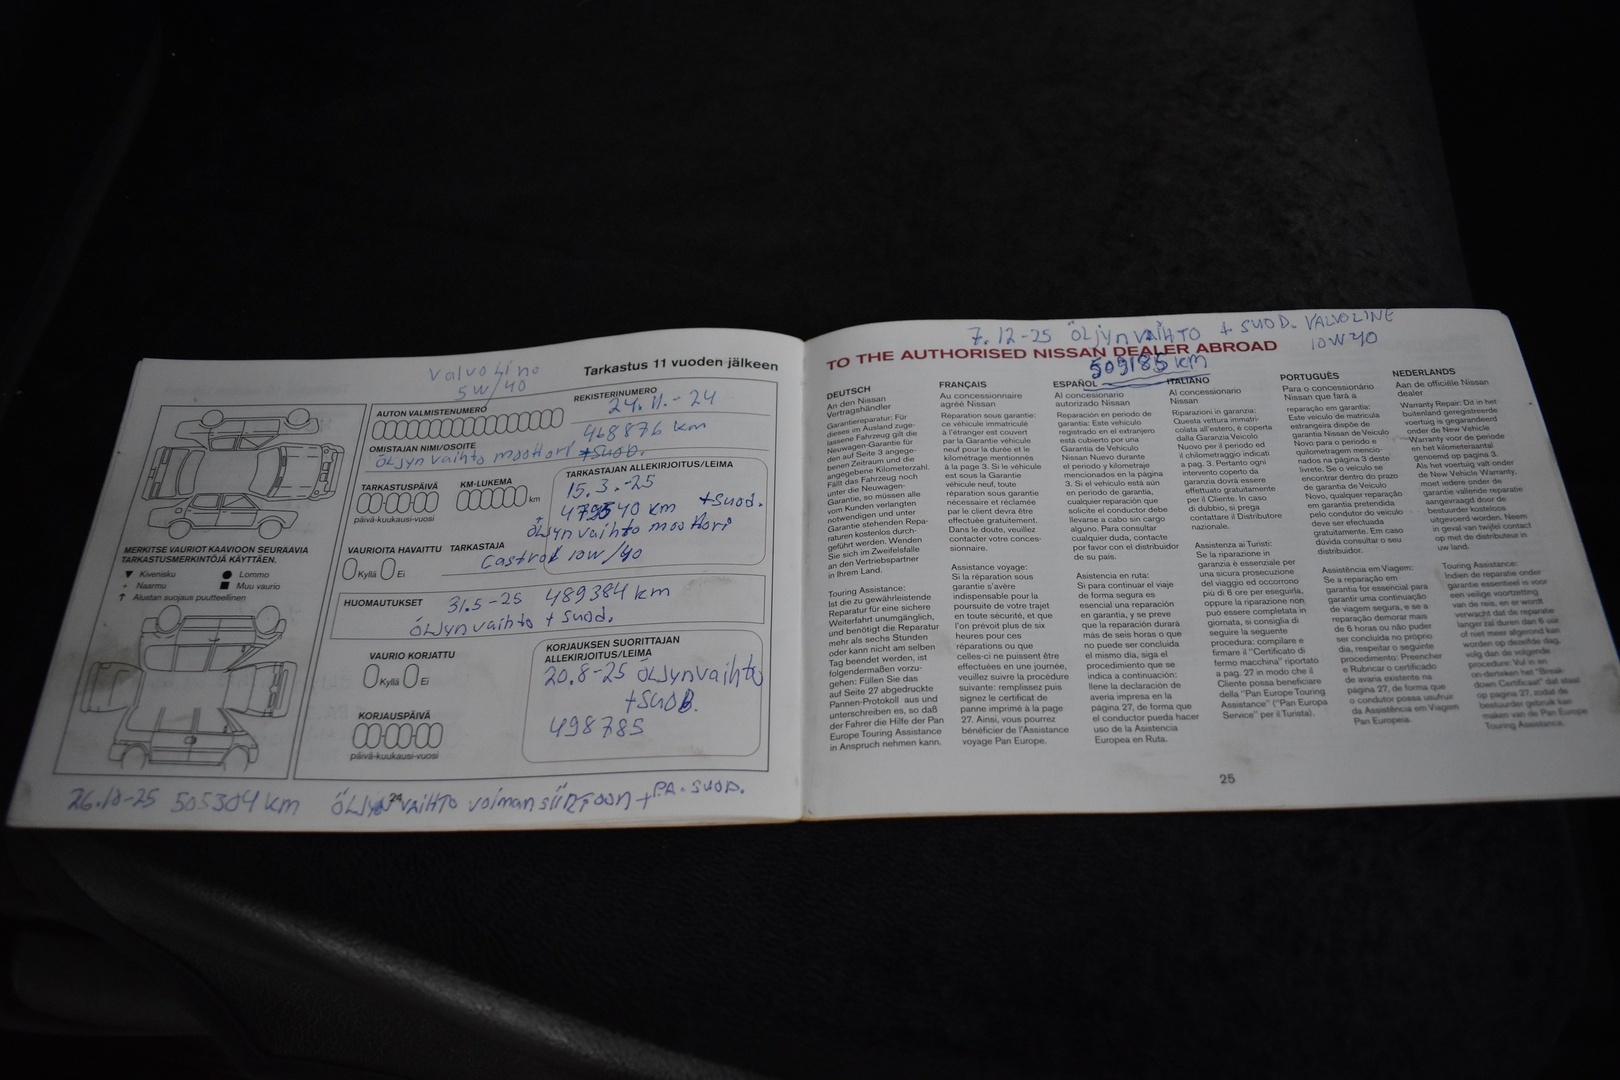 Valvoline
5W/40
Tarkastus 11 vuoden jälkeen
AUTON VALMISTENUMERO
REKISTERINUMERO
24.11.-24
468876 km
OMISTAJAN NIMI/OSOITE
ÖLJyn vaihto moottori +Suod.
TARKASTUSPÄIVÄ
päivä-kuukausi-vuosi
KM-LUKEMA
km
TARKASTAJAN ALLEKIRJOITUS/LEIMA
15.3.-25
40 km +Suod.
ÖLJyn vaihto moottori
Castrol 10W/40
VAURIOITA HAVAITTU
Kyllä Ei
TARKASTAJA
MERKITSE VAURIOT KAAVIOON SEURAAVIA
TARKASTUSMERKINTÖJÄ KÄYTTÄEN.
Kivenisku
Lommo
Naarmu
Muu vaurio
Alustan suojaus puutteellinen
HUOMAUTUKSET
31.5-25 489384 km
ÖLJyn vaihto + Suod.
VAURIO KORJATTU
Kyllä Ei
KORJAUKSEN SUORITTAJAN
ALLEKIRJOITUS/LEIMA
20.8-25 ÖLJyn vaihto
+SUOD.
498785
KORJAUSPÄIVÄ
päivä-kuukausi-vuosi
24
26.10-25 505304 km ÖLJyn VAIHTO voiman siiRTOON + PA. SUOD.
7.12-25 ÖLJyn VAIHTO + SUOD. VALVOLINE
10W40
509185 km
TO THE AUTHORISED NISSAN DEALER ABROAD
DEUTSCH
An den Nissan
Vertragshändler
Garantiereparatur: Für
dieses im Ausland zuge-
lassene Fahrzeug gilt die
Neuwagen-Garantie für
den auf Seite 3 angege-
benen Zeitraum und die
angegebene Kilometerzahl.
Fällt das Fahrzeug noch
unter die Neuwagen-
Garantie, so müssen alle
vom Kunden verlangten
notwendigen und unter
Garantie stehenden Repa-
raturen kostenlos durch-
geführt werden. Wenden
Sie sich im Zweifelsfalle
an den Vertriebspartner
in Ihrem Land.
Touring Assistance:
Ist die zu gewährleistende
Reparatur für eine sichere
Weiterfahrt unumgänglich,
und benötigt die Reparatur
mehr als sechs Stunden
oder kann nicht am selben
Tag beendet werden, ist
folgendermaßen vorzu-
gehen: Füllen Sie das
auf Seite 27 abgedruckte
Pannen-Protokoll aus und
unterschreiben es, so daß
der Fahrer die Hilfe der Pan
Europe Touring Assistance
in Anspruch nehmen kann.
FRANÇAIS
Au concessionnaire
agréé Nissan
Réparation sous garantie:
ce véhicule immatriculé
à l'étranger est couvert
par la Garantie véhicule
neuf pour la durée et le
kilométrage mentionnés
à la page 3. Si le véhicule
est sous la Garantie
véhicule neuf, toute
réparation sous garantie
nécessaire et réclamée
par le client devra être
effectuée gratuitement.
Dans le doute, veuillez
contacter votre conces-
sionnaire.
Assistance voyage:
Si la réparation sous
garantie s'avère
indispensable pour la
poursuite de votre trajet
en toute sécurité, et que
l'on prévoit plus de six
heures pour ces
réparations ou que
celles-ci ne puissent être
effectuées en une journée,
veuillez suivre la procédure
suivante: remplissez puis
signez le certificat de
panne imprimé à la page
27. Ainsi, vous pourrez
bénéficier de l'Assistance
voyage Pan Europe.
ESPAÑOL
Al concesionario
autorizado Nissan
Reparación en periodo de
garantía: Este vehículo
registrado en el extranjero
está cubierto por una
Garantía de Vehículo
Nissan Nuevo durante
el periodo y kilometraje
mencionados en la página
3. Si el vehículo está aún
en periodo de garantía,
cualquier reparación que
solicite el conductor debe
llevarse a cabo sin cargo
alguno. Para consultar
cualquier duda, contacte
por favor con el distribuidor
de su país.
Asistencia en ruta:
Si para continuar el viaje
de forma segura es
esencial una reparación
en garantía, y se preve
que la reparación durará
más de seis horas o que
no puede ser concluida
el mismo día, siga el
procedimiento que se
indica a continuación:
llene la declaración de
avería impresa en la
página 27, de forma que
el conductor pueda hacer
uso de la Asistencia
Europea en Ruta.
ITALIANO
Al concessionario
Nissan
Riparazioni in garanzia:
Questa vettura immatri-
colata all'estero, è coperta
dalla Garanzia Veicolo
Nuovo per il periodo ed
il chilometraggio indicati
a pag. 3. Pertanto ogni
intervento coperto da
garanzia dovrà essere
effettuato gratuitamente
per il Cliente. In caso
di dubbio, si prega
contattare il Distributore
nazionale.
Assistenza ai Turisti:
Se la riparazione in
garanzia è essenziale per
una sicura prosecuzione
del viaggio ed occorrono
più di 6 ore per eseguirla,
oppure la riparazione non
può essere completata in
giornata, si consiglia di
seguire la seguente
procedura: compilare e
firmare il "Certificato di
fermo macchina" riportato
a pag. 27 in modo che il
Cliente possa beneficiare
della "Pan Europe Touring
Assistance" ("Pan Europa
Service" per il Turista).
PORTUGUÊS
Para o concessionário
Nissan que fará a
reparação em garantia:
Este veículo de matrícula
estrangeira dispõe de
garantia Nissan de Veículo
Novo para o periodo e
quilometragem mencio-
nados na página 3 deste
livrete. Se o veículo se
encontrar dentro do prazo
de garantia de Veículo
Novo, qualquer reparação
em garantia pretendida
pelo condutor do veículo
deve ser efectuada
gratuitamente. Em caso
dúvida consultar o seu
distribuidor.
Assistência em Viagem:
Se a reparação em
garantia for essencial para
garantir uma continuação
de viagem segura, e se a
reparação demorar mais
de 6 horas ou não puder
ser concluída no próprio
dia, respeitar o seguinte
procedimento: Preencher
e Rubricar o certificado
de avaria existente na
página 27, de forma que
o condutor possa usufruir
da Assistência em Viagem
Pan Europeia.
NEDERLANDS
Aan de officiële Nissan
dealer
Warranty Repair: Dit in het
buitenland geregistreerde
voertuig is gegarandeerd
onder de New Vehicle
Warranty voor de periode
en het kilometeraantal
genoemd op pagina 3.
Als het voertuig valt onder
de New Vehicle Warranty,
moet iedere onder de
garantie vallende reparatie
aangevraagd door de
bestuurder kosteloos
uitgevoerd worden. Neem
in geval van twijfel contact
op met de distributeur in
uw land.
Touring Assistance:
Indien de reparatie onder
garantie essentieel is voor
een veilige voortzetting
van de reis, en er wordt
verwacht dat de reparatie
langer zal duren dan 6 uur
of niet meer afgerond kan
worden op dezelfde dag,
volg dan de volgende
procedure: Vul in en
onderteken het "Break-
down Certificaat" dat staat
op pagina 27, zodat de
bestuurder gebruik kan
maken van de Pan Europe
Touring Assistance.
25